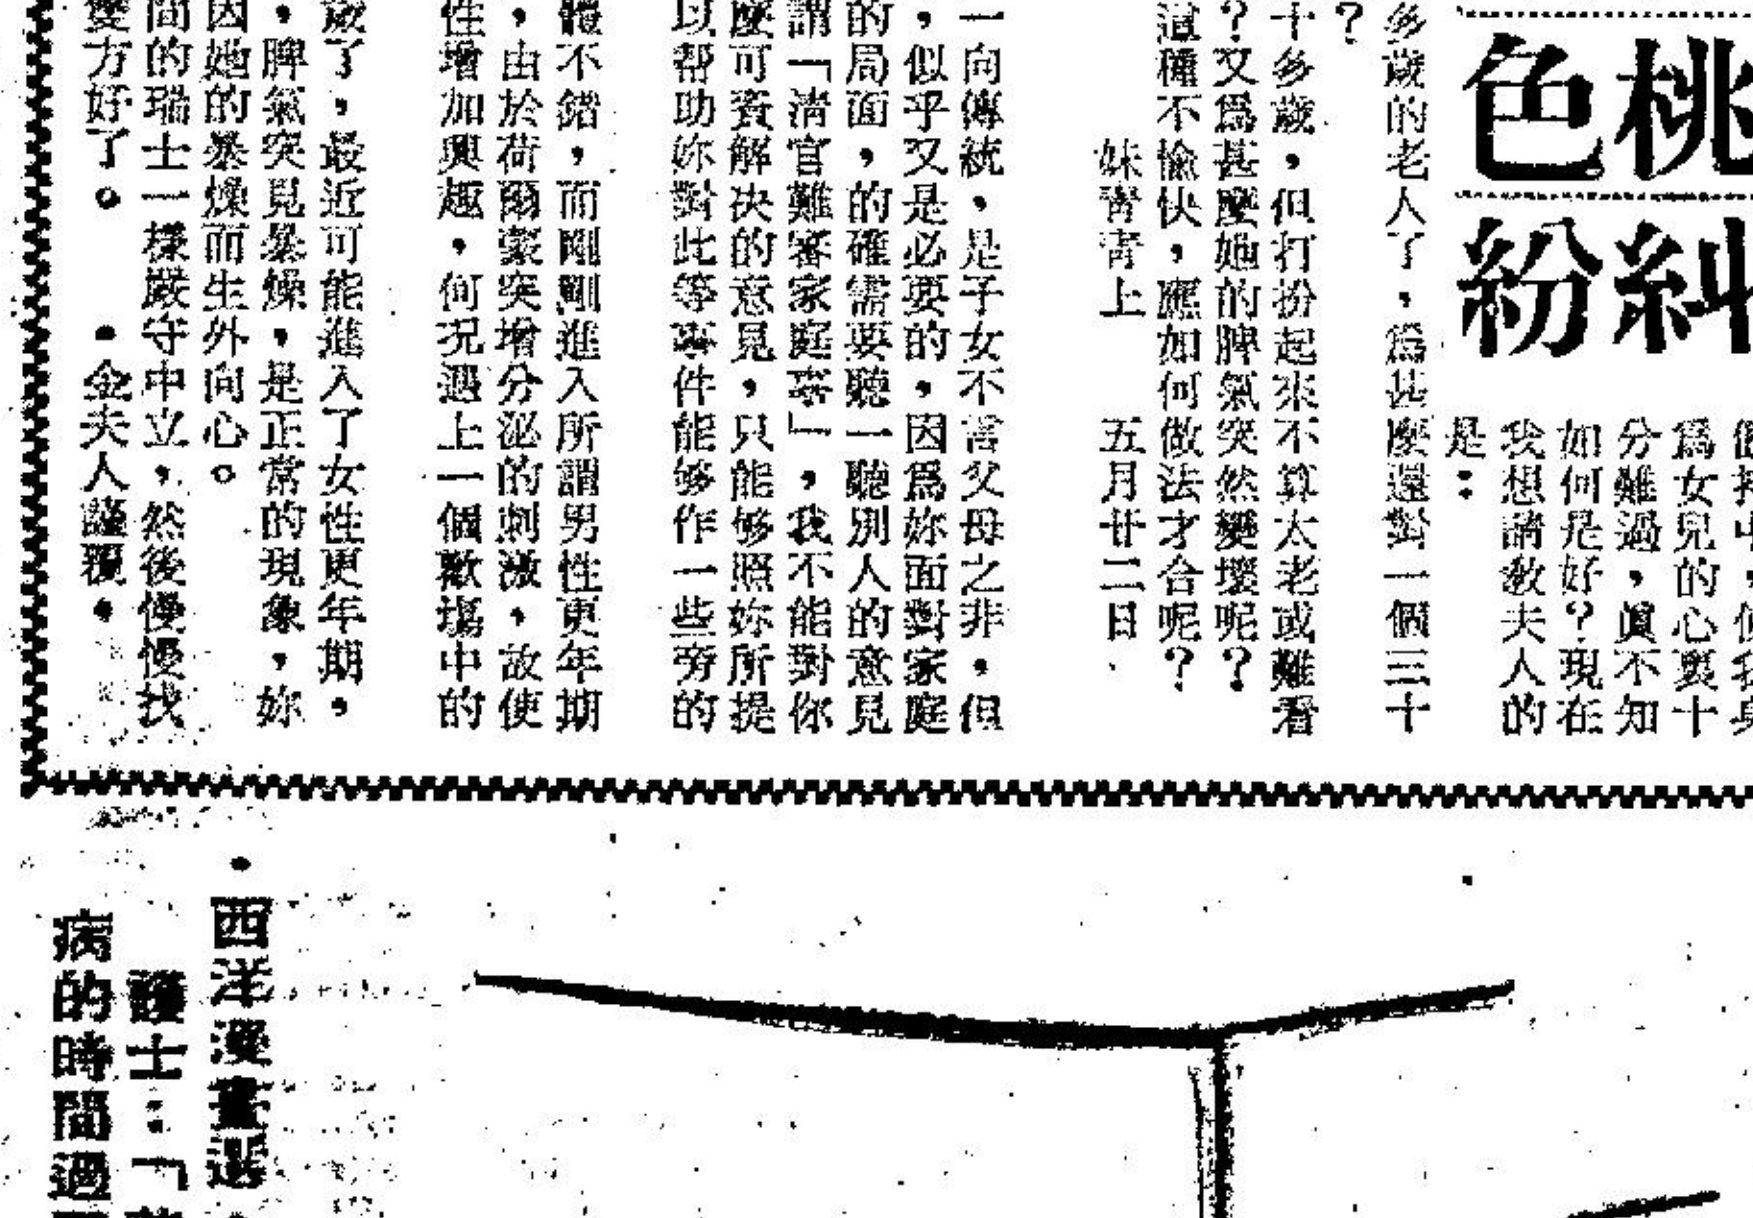 桃色
糾紛
爲女兒的心裏十
分難過，眞不知
如何是好？現在
我想請教夫人的
是：
多歲的老人了，爲甚麼還對一個三十
？
十多歲，但打扮起來不算太老或難看
？又爲甚麼她的脾氣突然變壞呢？
這種不愉快，應如何做法才合呢？
妹靑靑上　五月廿二日
一向傳統，是子女不言父母之非，但
，似乎又是必要的，因爲妳面對家庭
的局面，的確需要聽一聽別人的意見
謂「淸官難審家庭事」，我不能對你
麼可資解决的意見，只能够照妳所提
以帮助妳對此等事件能够作一些旁的
體不錯，而剛剛進入所謂男性更年期
，由於荷爾蒙突增分泌的刺激，故使
性增加興趣，何况遇上一個歡塲中的
歲了，最近可能進入了女性更年期，
，脾氣突見暴燥，是正常的現象，妳
因她的暴燥而生外向心。
間的瑞士一樣嚴守中立，然後慢慢找
雙方好了。　•金夫人謹覆•
•西洋漫畫選•
護士：「
病的時間過